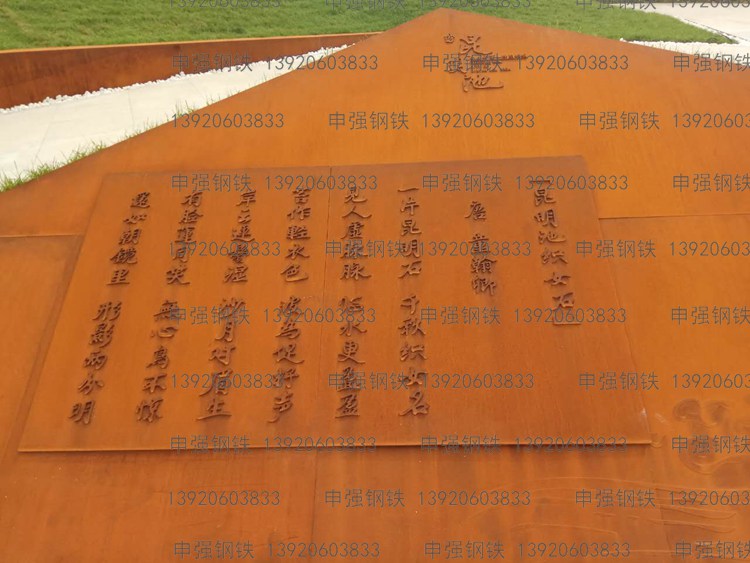 昆明池
昆明池织女石
唐 童翰卿
一片昆明石 千秋织女名
見人虚脉脉 临水更盈盈
苔作輕衣色 波為促杼声
岸云連鬢湿 沙月对眉生
有脸莲同笑 無心鳥不惊
還如朝鏡里 形影兩分明
申强钢铁 13920603833 申强钢铁 13920603833 申强钢铁
申强钢铁 13920603833 申强钢铁 13920603833 申强钢铁
申强钢铁 13920603833 申强钢铁 13920603833 申强钢铁 13920603833
申强钢铁 13920603833 申强钢铁 13920603833 申强钢铁 13920603833
申强钢铁 13920603833 申强钢铁 13920603833 申强钢铁 13920603833
申强钢铁 13920603833 申强钢铁 13920603833 申强钢铁 13920603833
申强钢铁 13920603833 申强钢铁 13920603833 申强钢铁 13920603833
申强钢铁 13920603833 申强钢铁 13920603833 申强钢铁 13920603833
申强钢铁 13920603833 申强钢铁 13920603833 申强钢铁 13920603833
申强钢铁 13920603833 申强钢铁 13920603833 申强钢铁